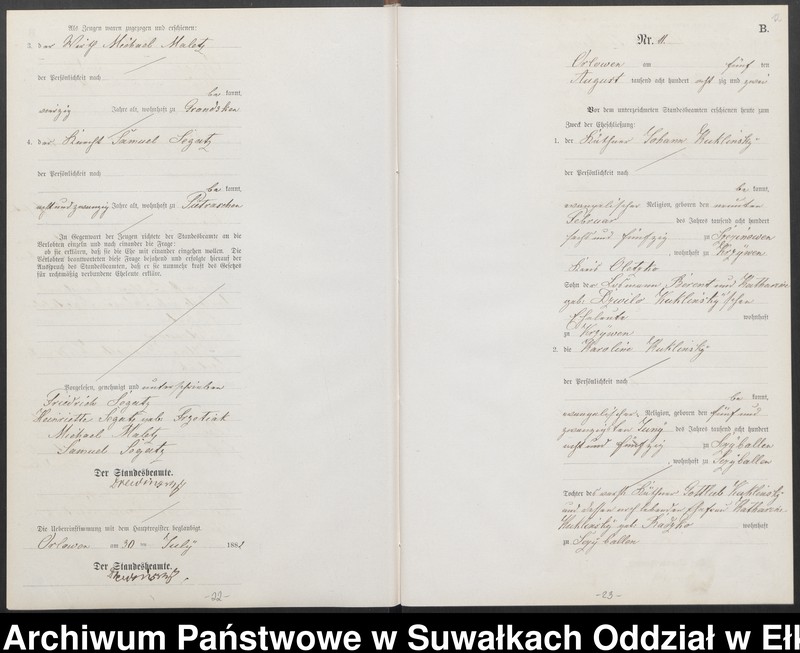 Als Zeugen waren zugezogen und erschienen:
3. der Wirth Michael Maletz
der Persönlichkeit nach
be kannt,
vierzig Jahre alt, wohnhaft zu Grondsken
4. der Knecht Samuel Sogatz
der Persönlichkeit nach
be kannt,
achtundzwanzig Jahre alt, wohnhaft zu Pietraschen
In Gegenwart der Zeugen richtete der Standesbeamte an die
Verlobten einzeln und nach einander die Frage:
ob sie erklären, daß sie die Ehe mit einander eingehen wollen. Die
Verlobten beantworteten diese Frage bejahend und erfolgte hierauf der
Ausspruch des Standesbeamten, daß er sie nunmehr kraft des Gesetzes
für rechtmäßig verbundene Eheleute erkläre.
Vorgelesen, genehmigt und unterschrieben
Friedrich Sogatz
Heinriette Sogatz geb.
Michael Maletz
Samuel Sogatz
Der Standesbeamte.
Die Uebereinstimmung mit dem Hauptregister beglaubigt.
Orlowen am 30 ten July 1882
Der Standesbeamte.
-22-
B.
Nr. 11.
Orlowen am fünf ten
August tausend acht hundert acht zig und zwei
Vor dem unterzeichneten Standesbeamten erschienen heute zum
Zweck der Eheschließung:
1. der Käthner Johann Kuklinsky
der Persönlichkeit nach
be kannt,
evangelischer Religion, geboren den neunten
Februar des Jahres tausend acht hundert
sechs und fünfzig zu
, wohnhaft zu Krzywen
Kreis Oletzko
Sohn der Losmann Berent und Katharine
geb. Kuklinsky'schen
Eheleute wohnhaft
zu Krzywen
2. die Karoline Kuklinsky
der Persönlichkeit nach
be kannt,
evangelischer Religion, geboren den fünf und
zwanzigsten Juny des Jahres tausend acht hundert
acht und fünfzig zu Szeyballen
, wohnhaft zu Szeyballen
Tochter des verst. Käthner Gottlieb Kuklinsky
und dessen noch lebenden Ehefrau Katharine
Kuklinsky geb. Radzko wohnhaft
zu Szeyballen
-23-
Archiwum Państwowe w Suwałkach Oddział w Ełk